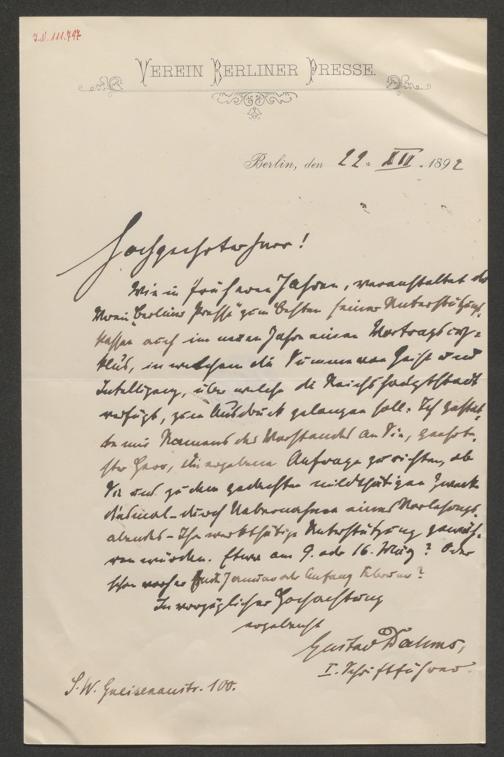 I.N. 111.797
VEREIN BERLINER PRESSE.
Berlin, den 22. XII. 1892
Hochgeehrter Herr!
Wie in früheren Jahren, veranstaltet der
Verein "Berliner Presse" zum Besten seiner Unterstützungs-
kassen auch im neuen Jahre einen Vortragscyk-
klus, in welchem die Summe von Geist und
Intelligenz, über welche die Reichshauptstadt
verfügt, zum Ausdruck gelangen soll. Ich gestat-
te mir Namens des Vorstandes an Sie, geehrte-
ster Herr, die ergebene Anfrage zu richten, ob
Sie uns zu dem gedachten mildthätigen Zwecke
diesmal durch Uebernahme eines Vorlesungs-
abends Ihre werkthätige Unterstützung gewäh-
ren würden. Etwa am 9. oder 16. März? Oder
schon vorher Ende Januar oder Anfang Februar?
In vorzüglicher Hochachtung
ergebenst
Gustav Dahms,
I. Schriftführer.
S.W. Gneisenaustr. 100.